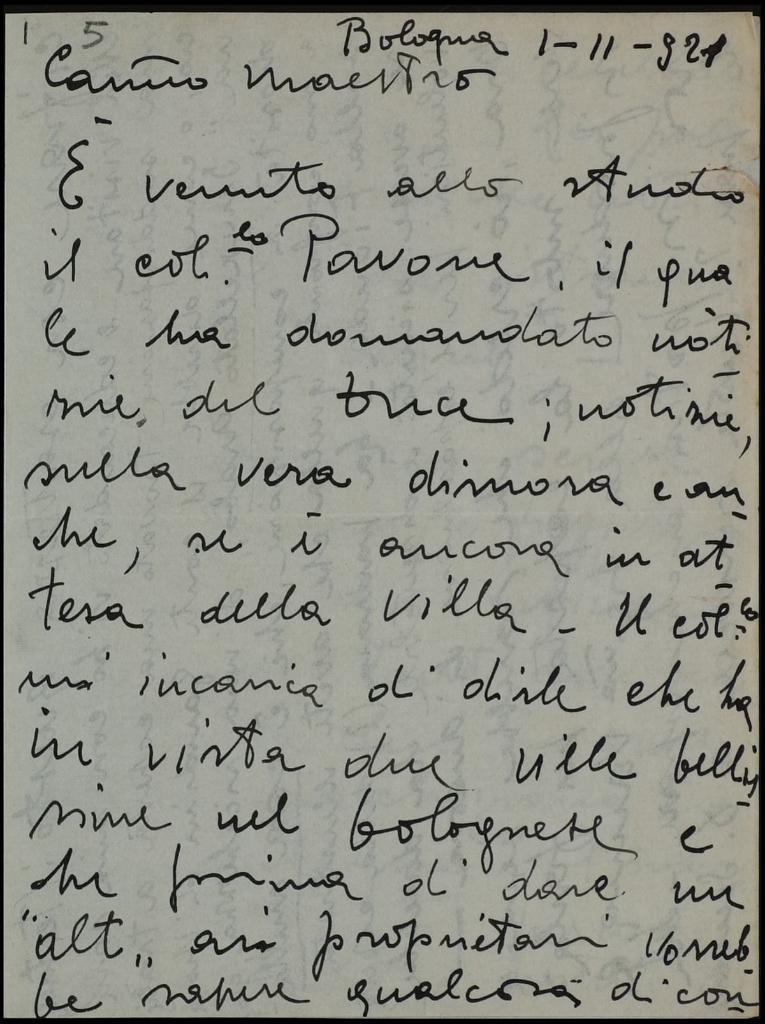 1 5
Bologna 1-11-921
Carmo Maestro
È venuto allo studio
il col.lo Pavone, il qua
le ha domandato noti
zie del truce; notizie,
sulla vera dimora e an
che, se è ancora in at
tesa della villa - Il col.lo
mi incarica di dirle che ha
in vista due ville bellis
sime nel bolognese e
che prima di dare un
"alt" ai proprietari vorreb
be sapere qualcosa di con